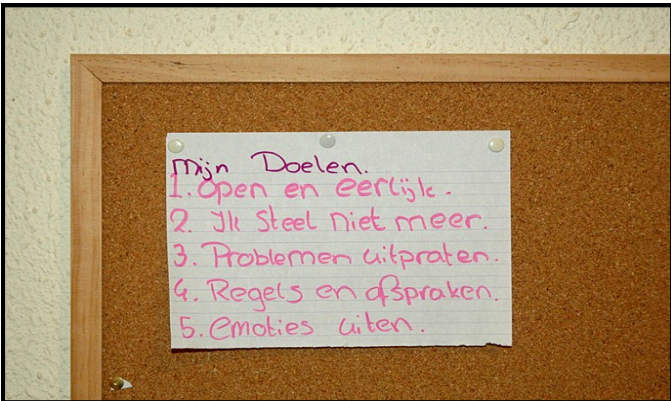 Mijn Doelen.
1. Open en eerlijk.
2. Ik steel niet meer.
3. Problemen uitpraten.
4. Regels en afspraken.
5. emoties uiten.